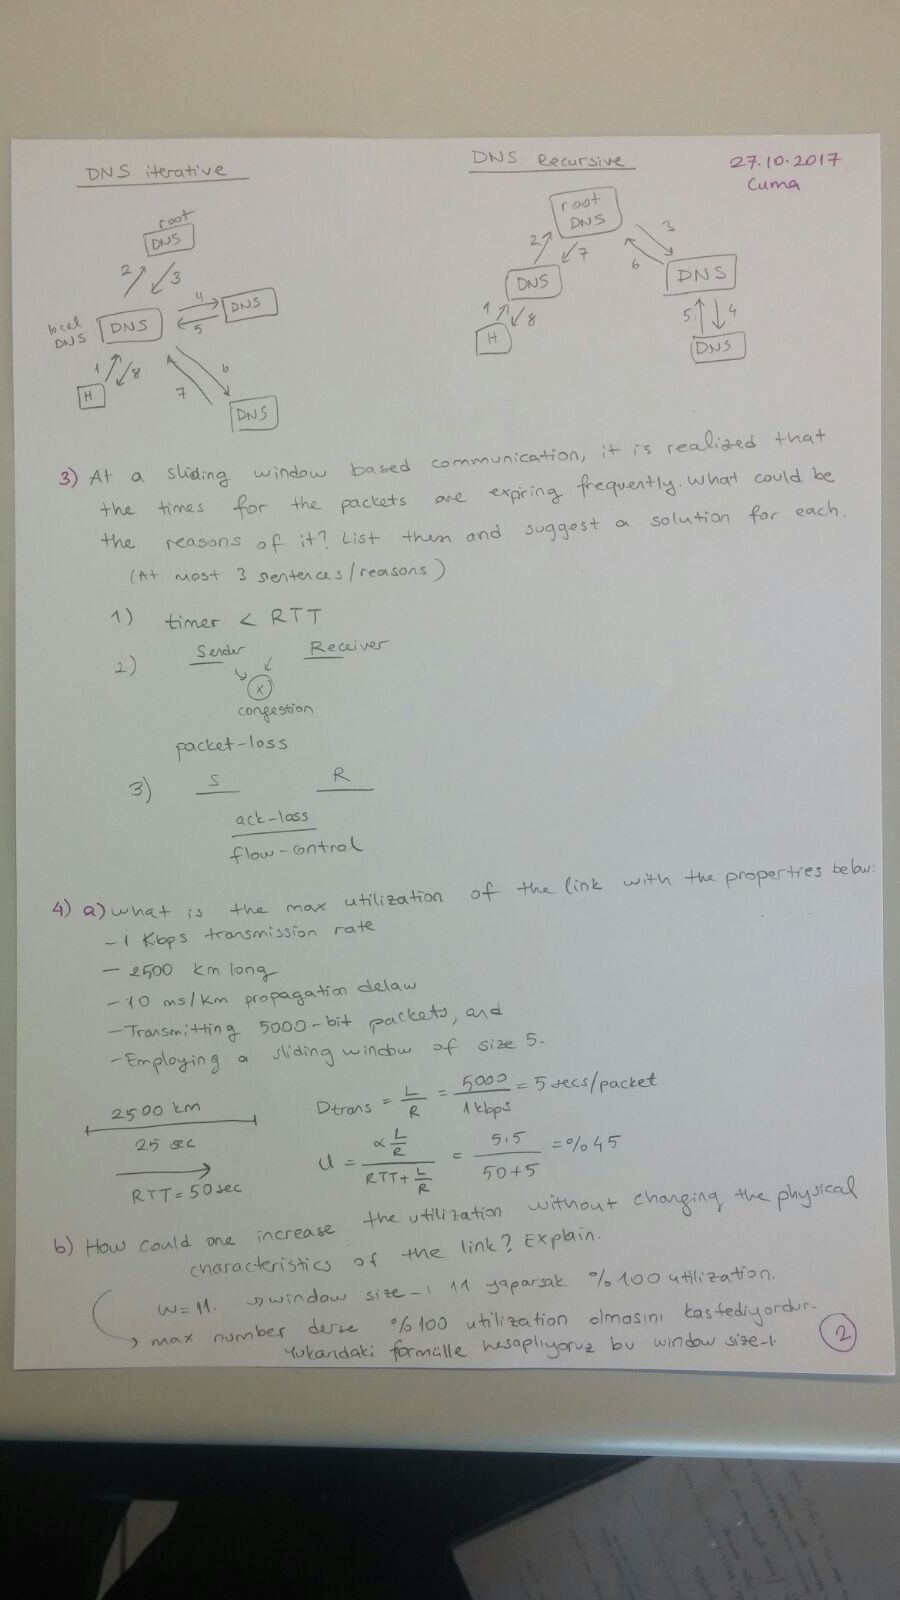 DNS iterative
DNS Recursive
27.10.2017
Cuma
root
DNS
2
3
local
DNS
DNS
4
5
DNS
1
8
H
6
7
DNS
root
DNS
2
7
3
6
DNS
DNS
1
8
H
5
4
DNS
3) At a sliding window based communication, it is realized that
the times for the packets are expiring frequently. What could be
the reasons of it? List them and suggest a solution for each.
(At most 3 sentences/reasons)
1) timer < RTT
2) Sender Receiver
x
congestion
packet-loss
3) S R
ack-loss
flow-control
4) a) what is the max utilization of the link with the properties below:
- 1 Kbps transmission rate
- 2500 km long
- 10 ms/km propagation delaw
- Transmitting 5000-bit packets, and
- Employing a sliding window of size 5.
2500 km
25 sec
RTT = 50 sec
Dtrans = L/R = 5000/1kbps = 5 secs/packet
U = α L/R / RTT + L/R = 5.5 / 50+5 = %45
b) How could one increase the utilization without changing the physical
characteristics of the link? Explain.
w=11. → window size-ı 11 yaparsak %100 utilization.
→ max number derse %100 utilization olmasını kastediyordur.
Yukarıdaki formülle hesaplıyoruz bu window size-ı.
2